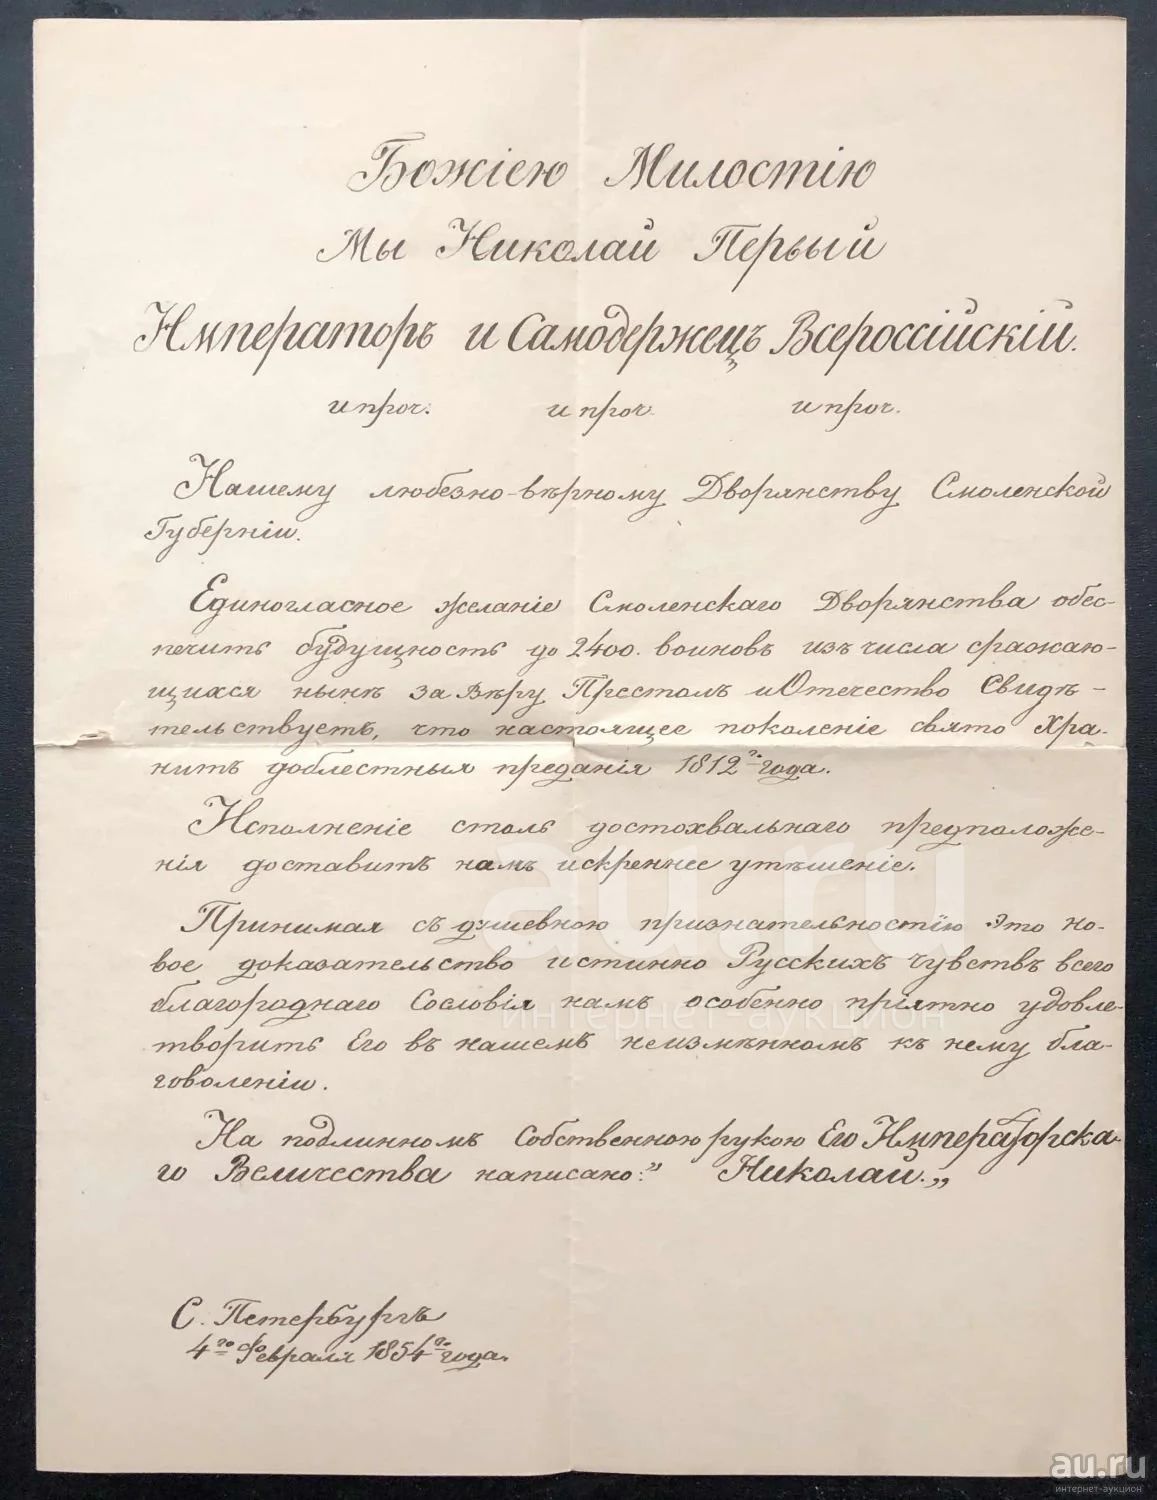 Божіею Милостію
Мы Николай Первый
Императоръ и Самодержецъ Всероссійскій.
и проч. и проч. и проч.
Нашему любезно-вѣрному Дворянству Смоленской
Губерніи.
Единогласное желаніе Смоленскаго Дворянства обес-
печить будущность до 2400. воиновъ изъ числа сражаю-
щихся нынѣ за Вѣру Престолъ и Отечество Свидѣ-
тельствуетъ, что настоящее поколеніе свято Хра-
нитъ доблестныя преданія 1812го года.
Исполненіе столь достохвальнаго предположе-
нія доставитъ намъ искреннее утѣшеніе.
Принимая съ душевною признательностію это но-
вое доказательство истинно Русскихъ чувствъ всего
благороднаго Сословія намъ особенно пріятно удовле-
творить Его въ нашемъ неизмѣнномъ къ нему бла-
говоленіи.
На подлинномъ Собственною рукою Его Императорска-
го Величества написано: „Николай.„
С. Петербургъ
4го Февраля 1854го года.
au.ru
интернет-аукцион
au.ru
интернет-аукцион